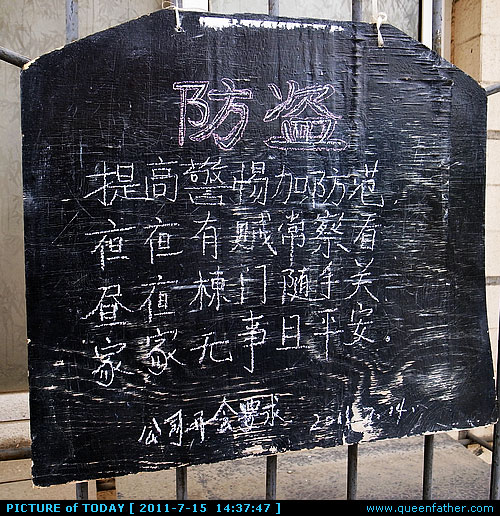 防盗
提高警惕加防范.
夜夜有贼常察看
昼夜栋门随手关
家家无事日平安.
公司开会要求 2011.7.14.
PICTURE of TODAY [ 2011-7-15 14:37:47 ]
www.queenfather.com